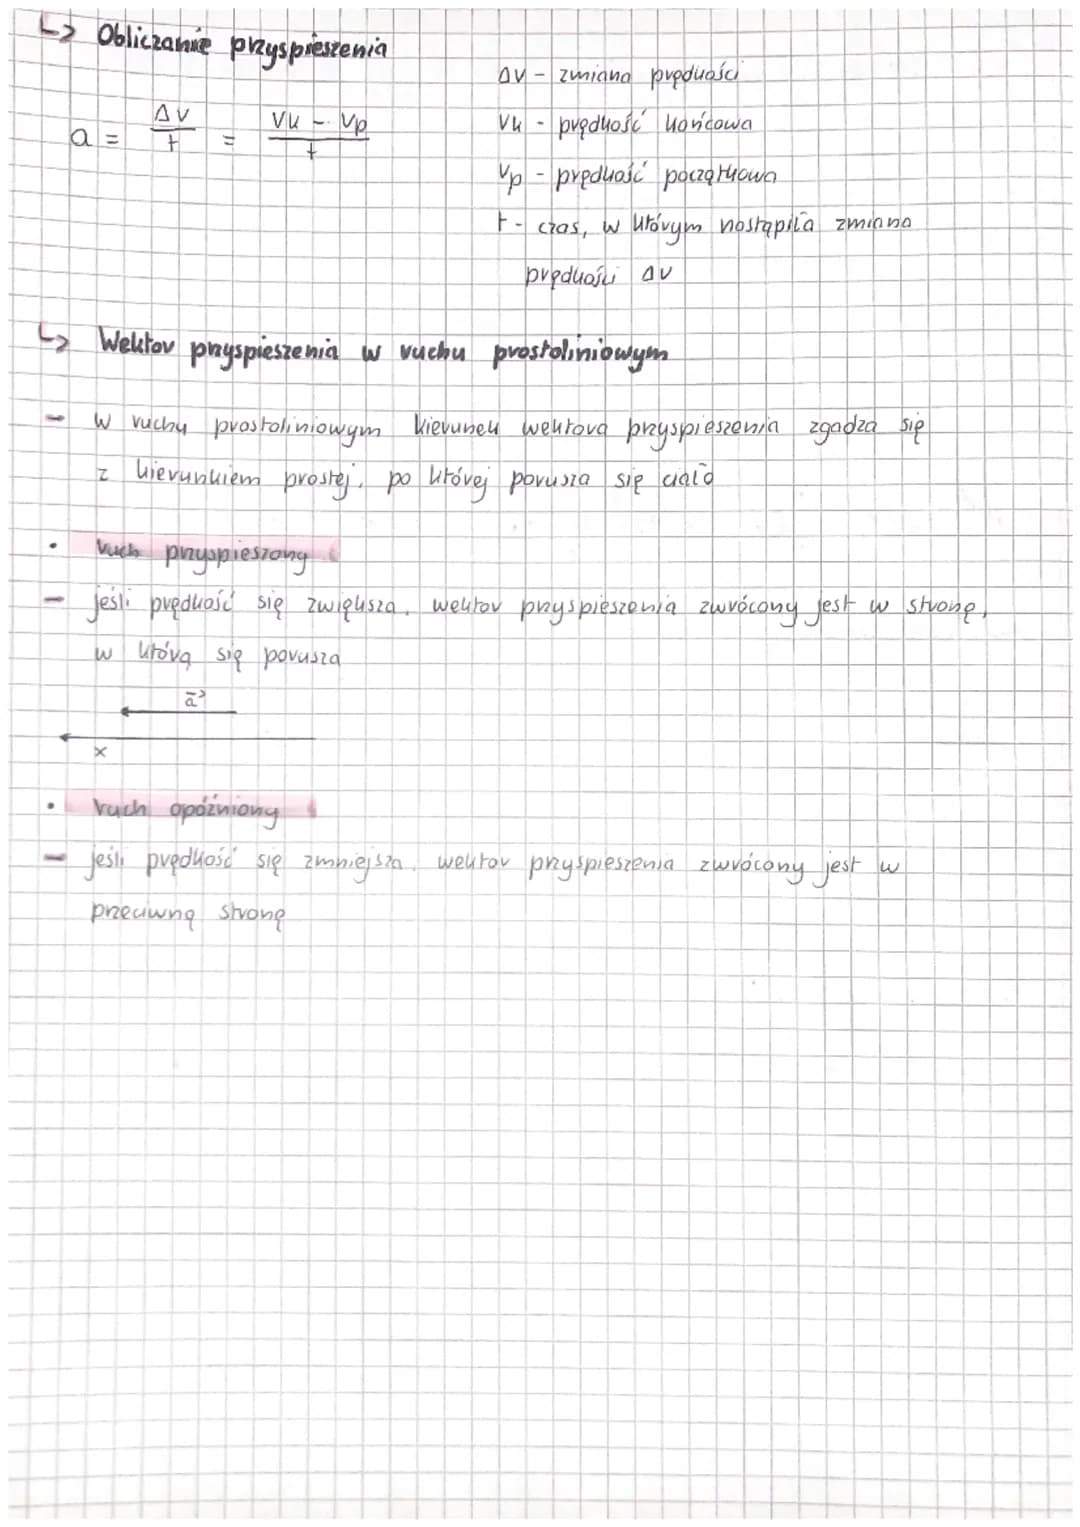 ↳ Obliczanie przyspieszenia
a = Δv/t = Vk - Vp/t
Δv - zmiana prędkości
Vk - prędkość końcowa
Vp - prędkość początkowa
t - czas, w którym nastąpiła zmiana
prędkości Δv
↳ Wektor przyspieszenia w ruchu prostoliniowym
- w ruchy prostoliniowym kierunek wektora przyspieszenia zgadza się
z kierunkiem prostej, po której porusza się ciało
• ruch przyspieszony
- jeśli prędkość się zwiększa, wektor przyspieszenia zwrócony jest w stronę,
w którą się porusza
a→
x
• ruch opóźniony
- jeśli prędkość się zmniejsza, wektor przyspieszenia zwrócony jest w
przeciwną stronę